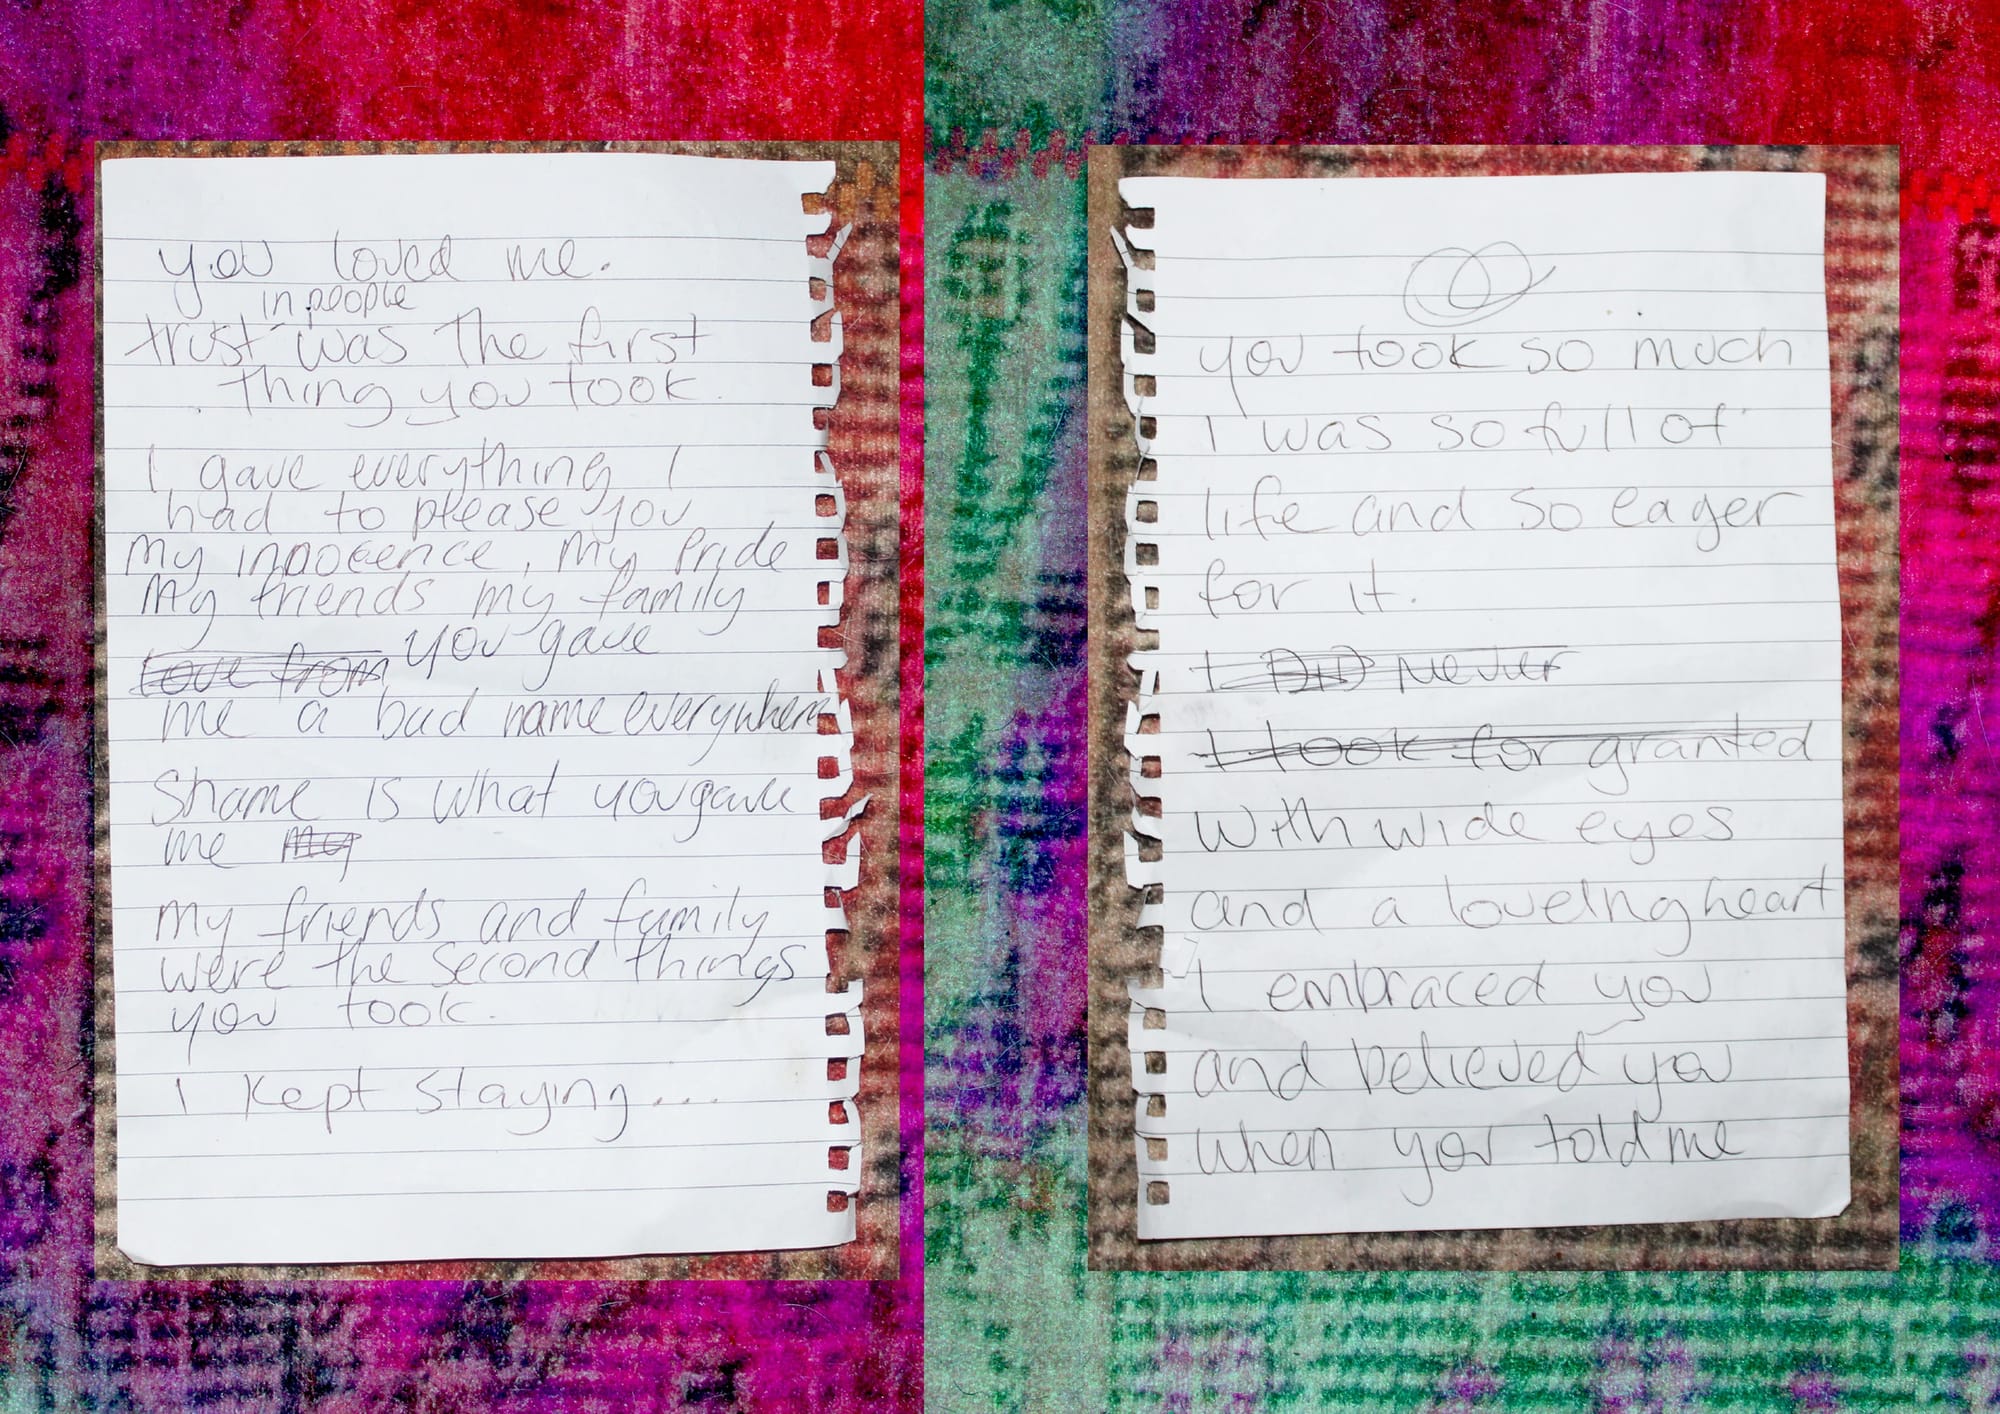 you loved me.
in people
trust was the first
thing you took.
I gave everything I
had to please you
my innocence, my pride
My friends my family
love from you gave
me a bad name everywhere
Shame is what you gave
me my
my friends and family
were the second things
you took.
I kept staying...
you took so much
I was so full of
life and so eager
for it.
I DID Never
I took for granted
with wide eyes
and a loveing heart
I embraced you
and believed you
when you told me